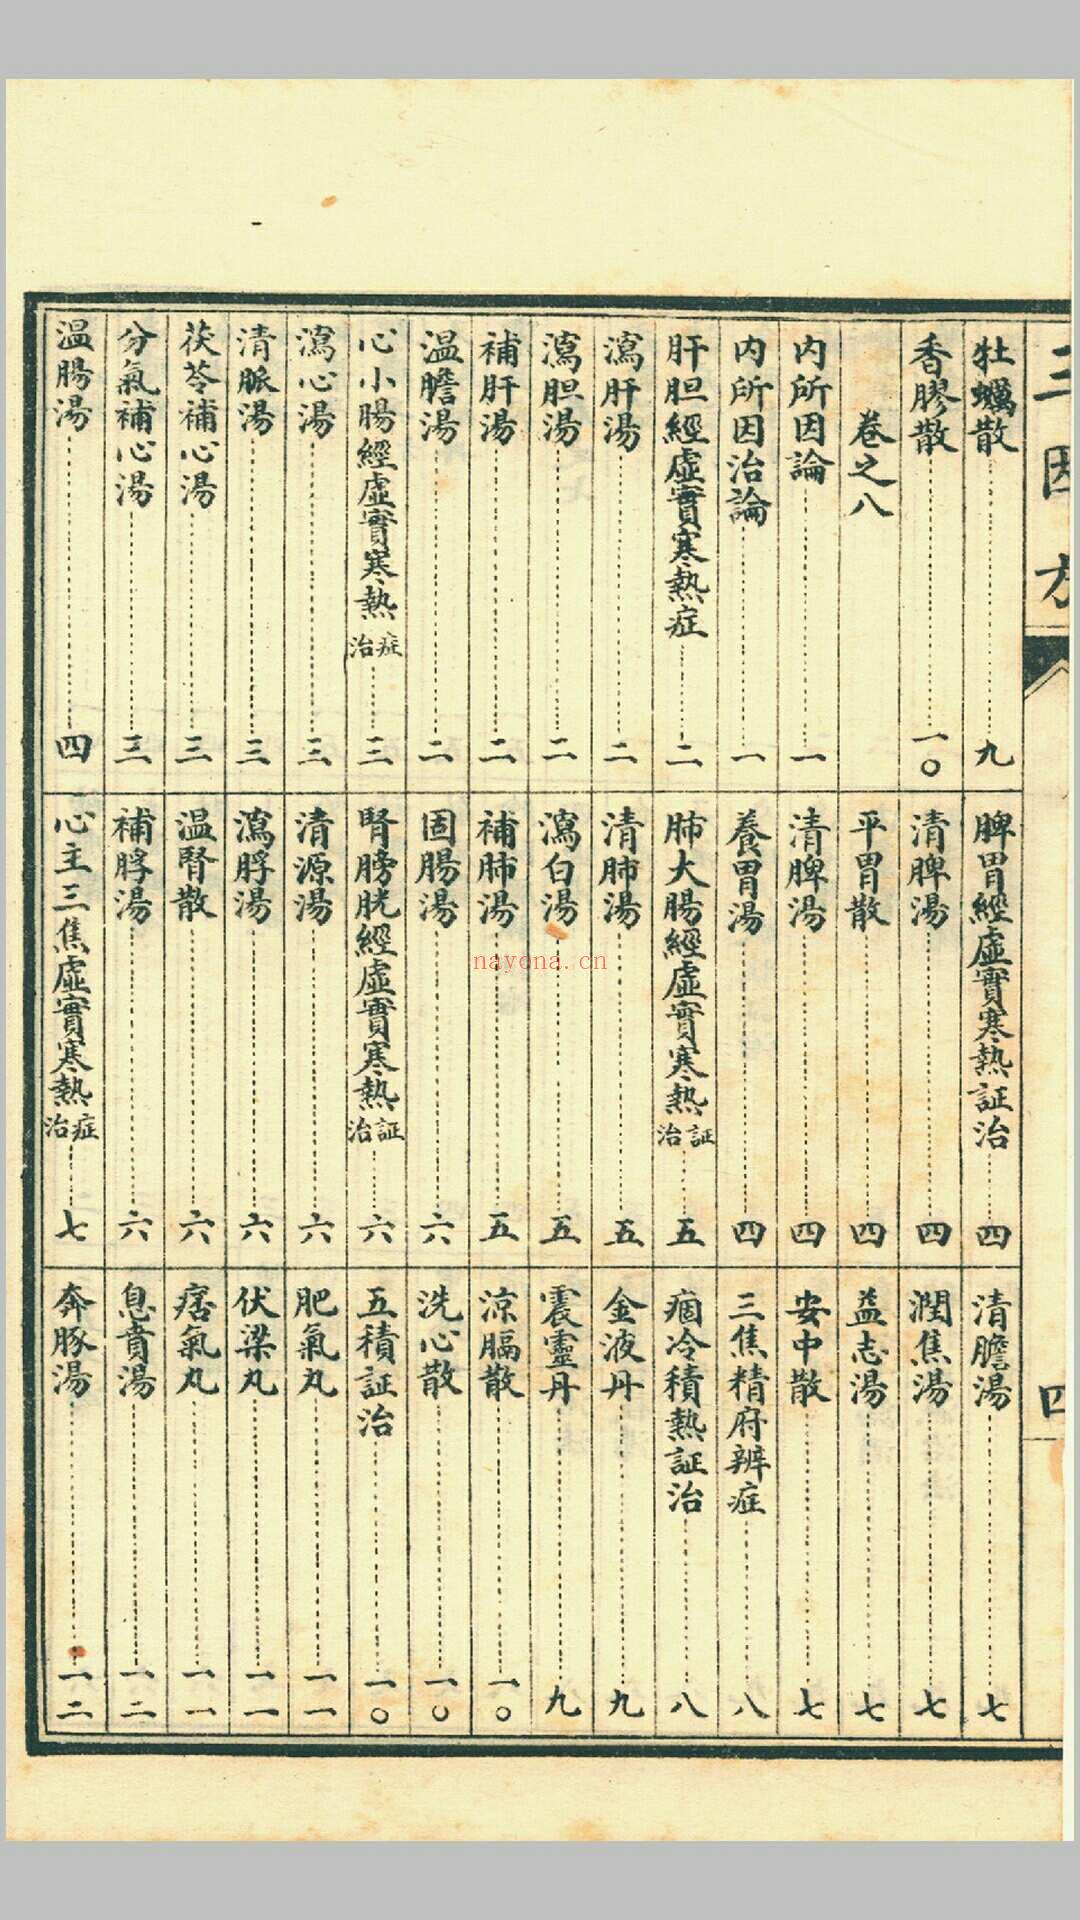 三因方
四
牡蠣散 九
香膠散 一〇
卷之八
內所因論 一
內所因治論 一
肝胆經虛實寒熱症 二
瀉肝湯 二
瀉胆湯 二
補肝湯 二
温膽湯 二
心小腸經虛實寒熱症治 三
瀉心湯 三
清脈湯 三
茯苓補心湯 三
分氣補心湯 三
温腸湯 四
脾胃經虛實寒熱証治 四
清脾湯 四
平胃散 四
清脾湯 四
養胃湯 四
肺大腸經虛實寒熱証治 五
清肺湯 五
瀉白湯 五
補肺湯 五
固腸湯 六
腎膀胱經虛實寒熱証治 六
清源湯 六
瀉脬湯 六
温腎散 六
補脬湯 六
心主三焦虛實寒熱症治 七
清膽湯 七
潤焦湯 七
益志湯 七
安中散 七
三焦精府辨症 八
痼冷積熱証治 八
金液丹 九
震靈丹 九
涼膈散 一〇
洗心散 一〇
五積証治 一〇
肥氣丸 一一
伏梁丸 一一
痞氣丸 一一
息賁湯 一二
奔豚湯 一二
nayona.cn